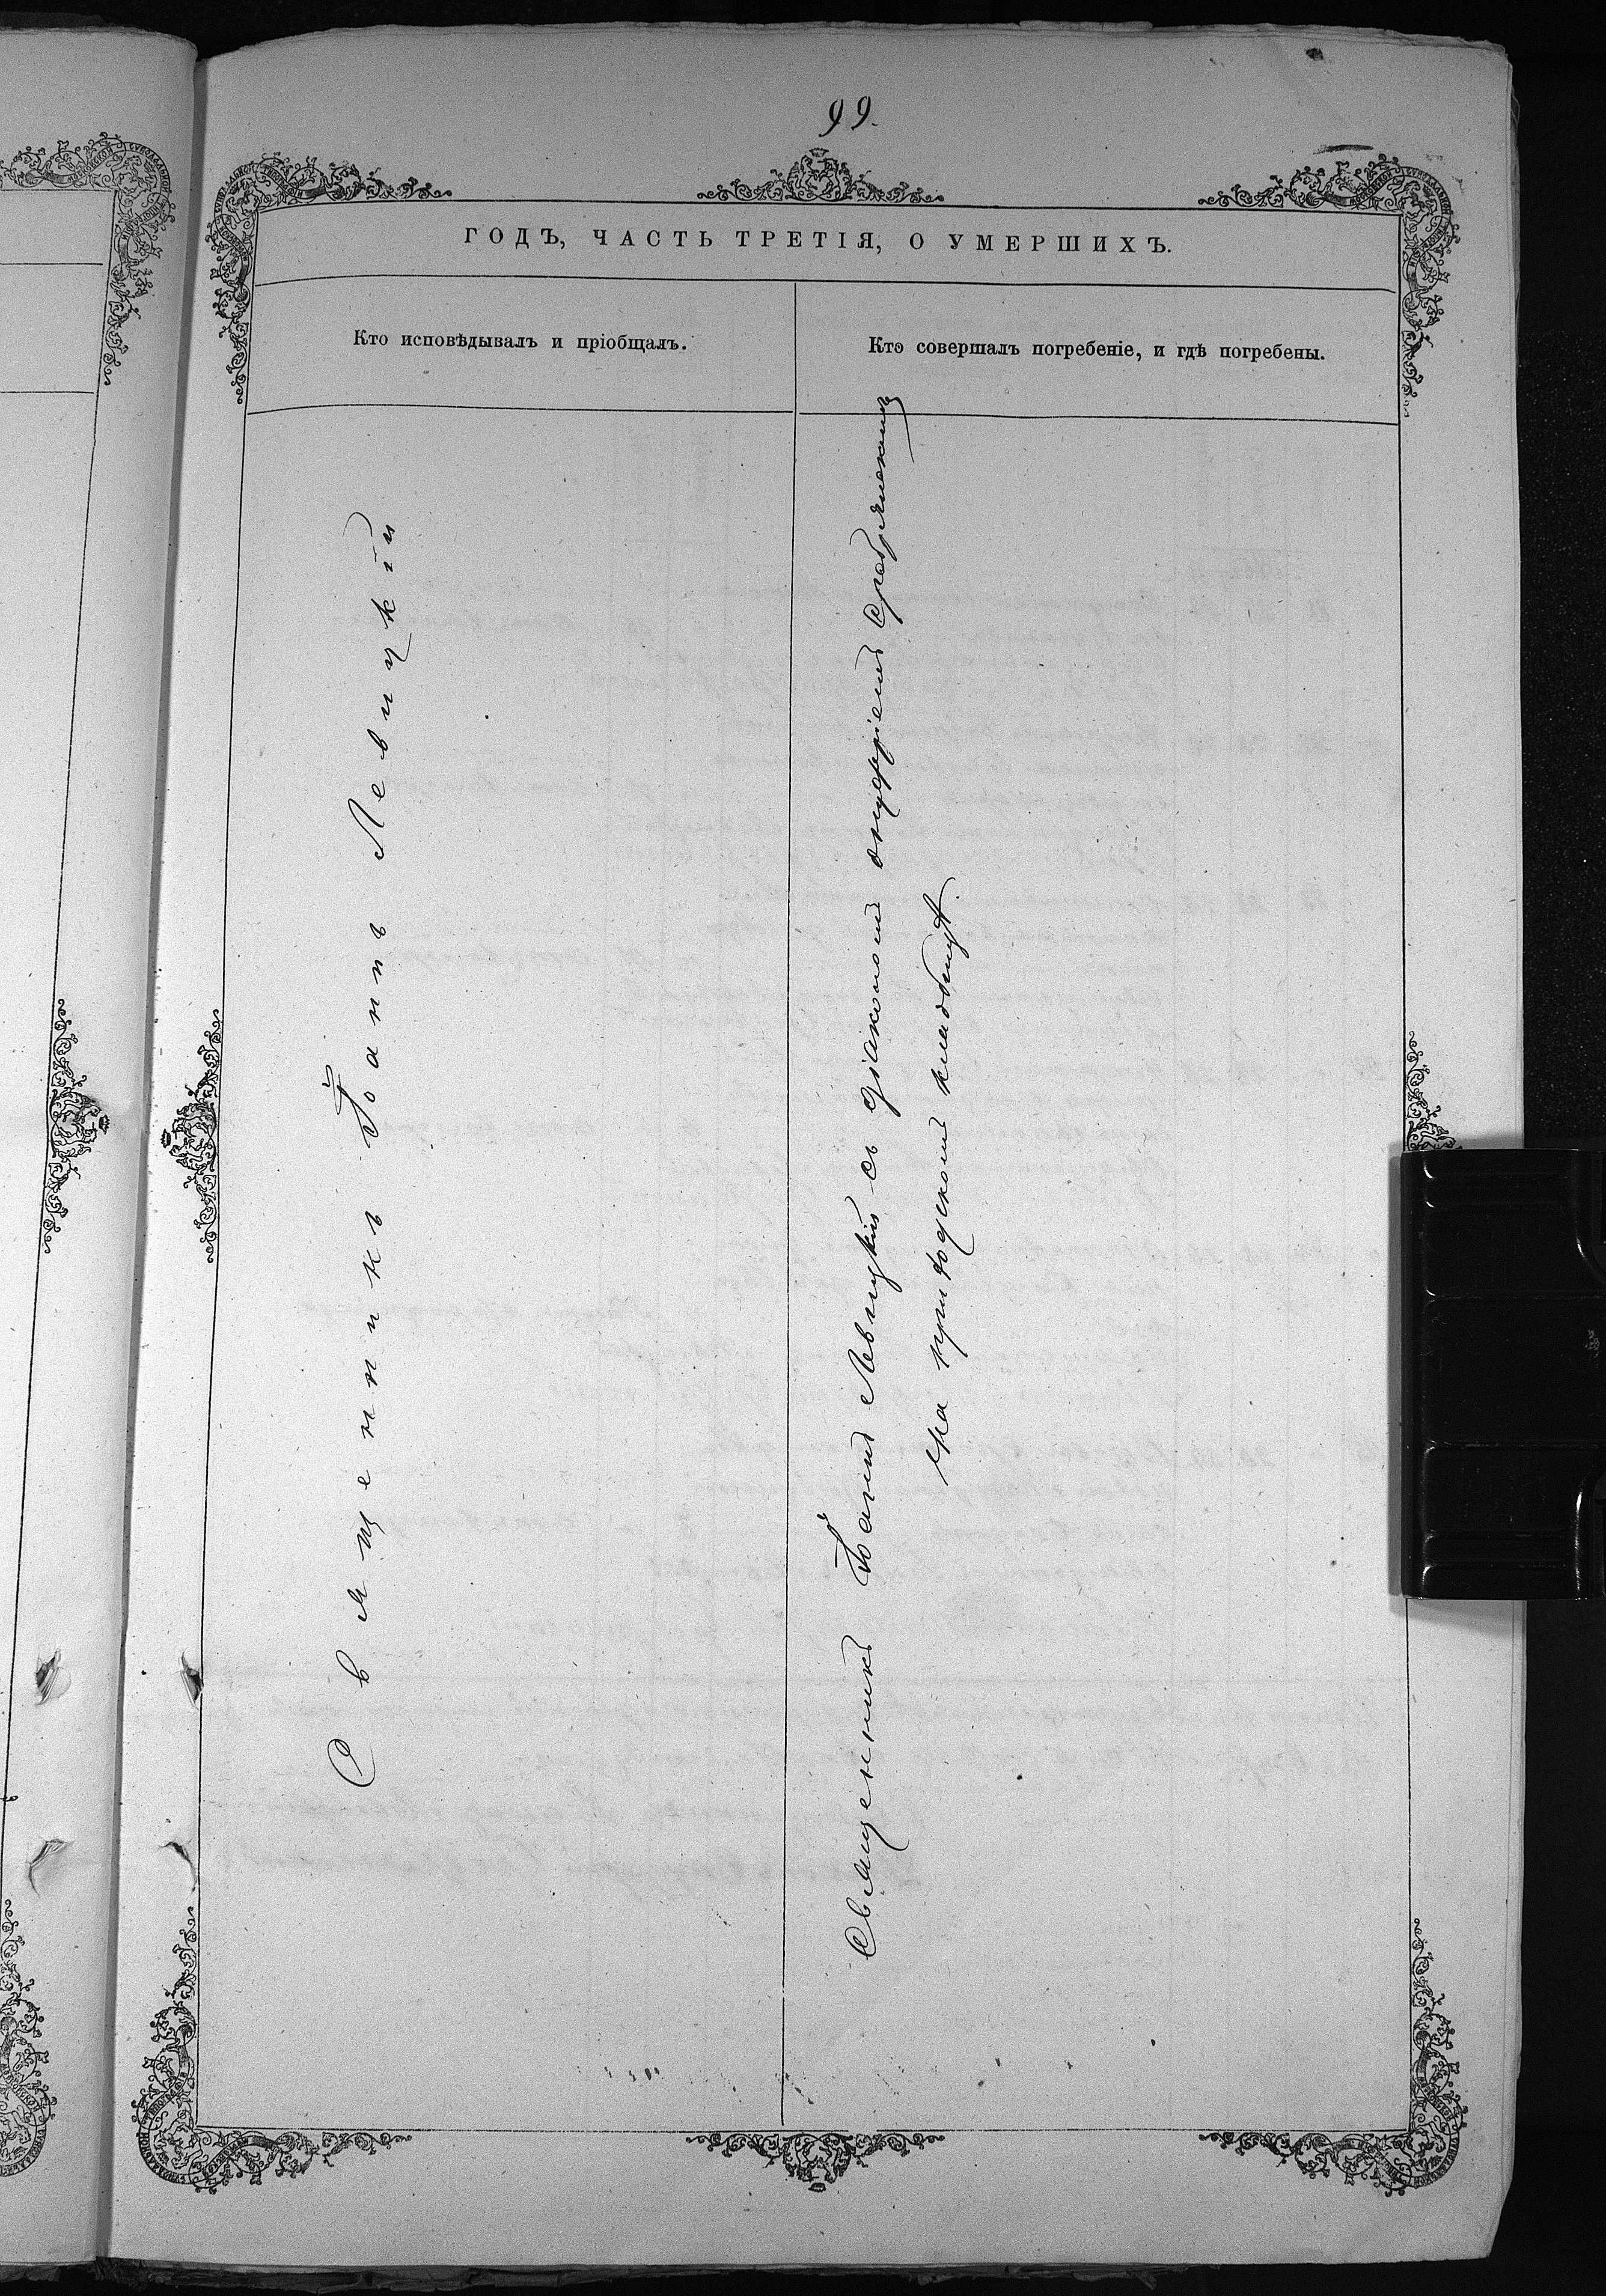 99.
ГОДЪ, ЧАСТЬ ТРЕТІЯ, О УМЕРШИХЪ.
Кто исповѣдывалъ и пріобщалъ.
Кто совершалъ погребеніе, и гдѣ погребены.
Священникъ Іоаннъ Левицкій
Священникъ Іоаннъ Левицкій съ діакономъ
на приходскомъ кладбищѣ.